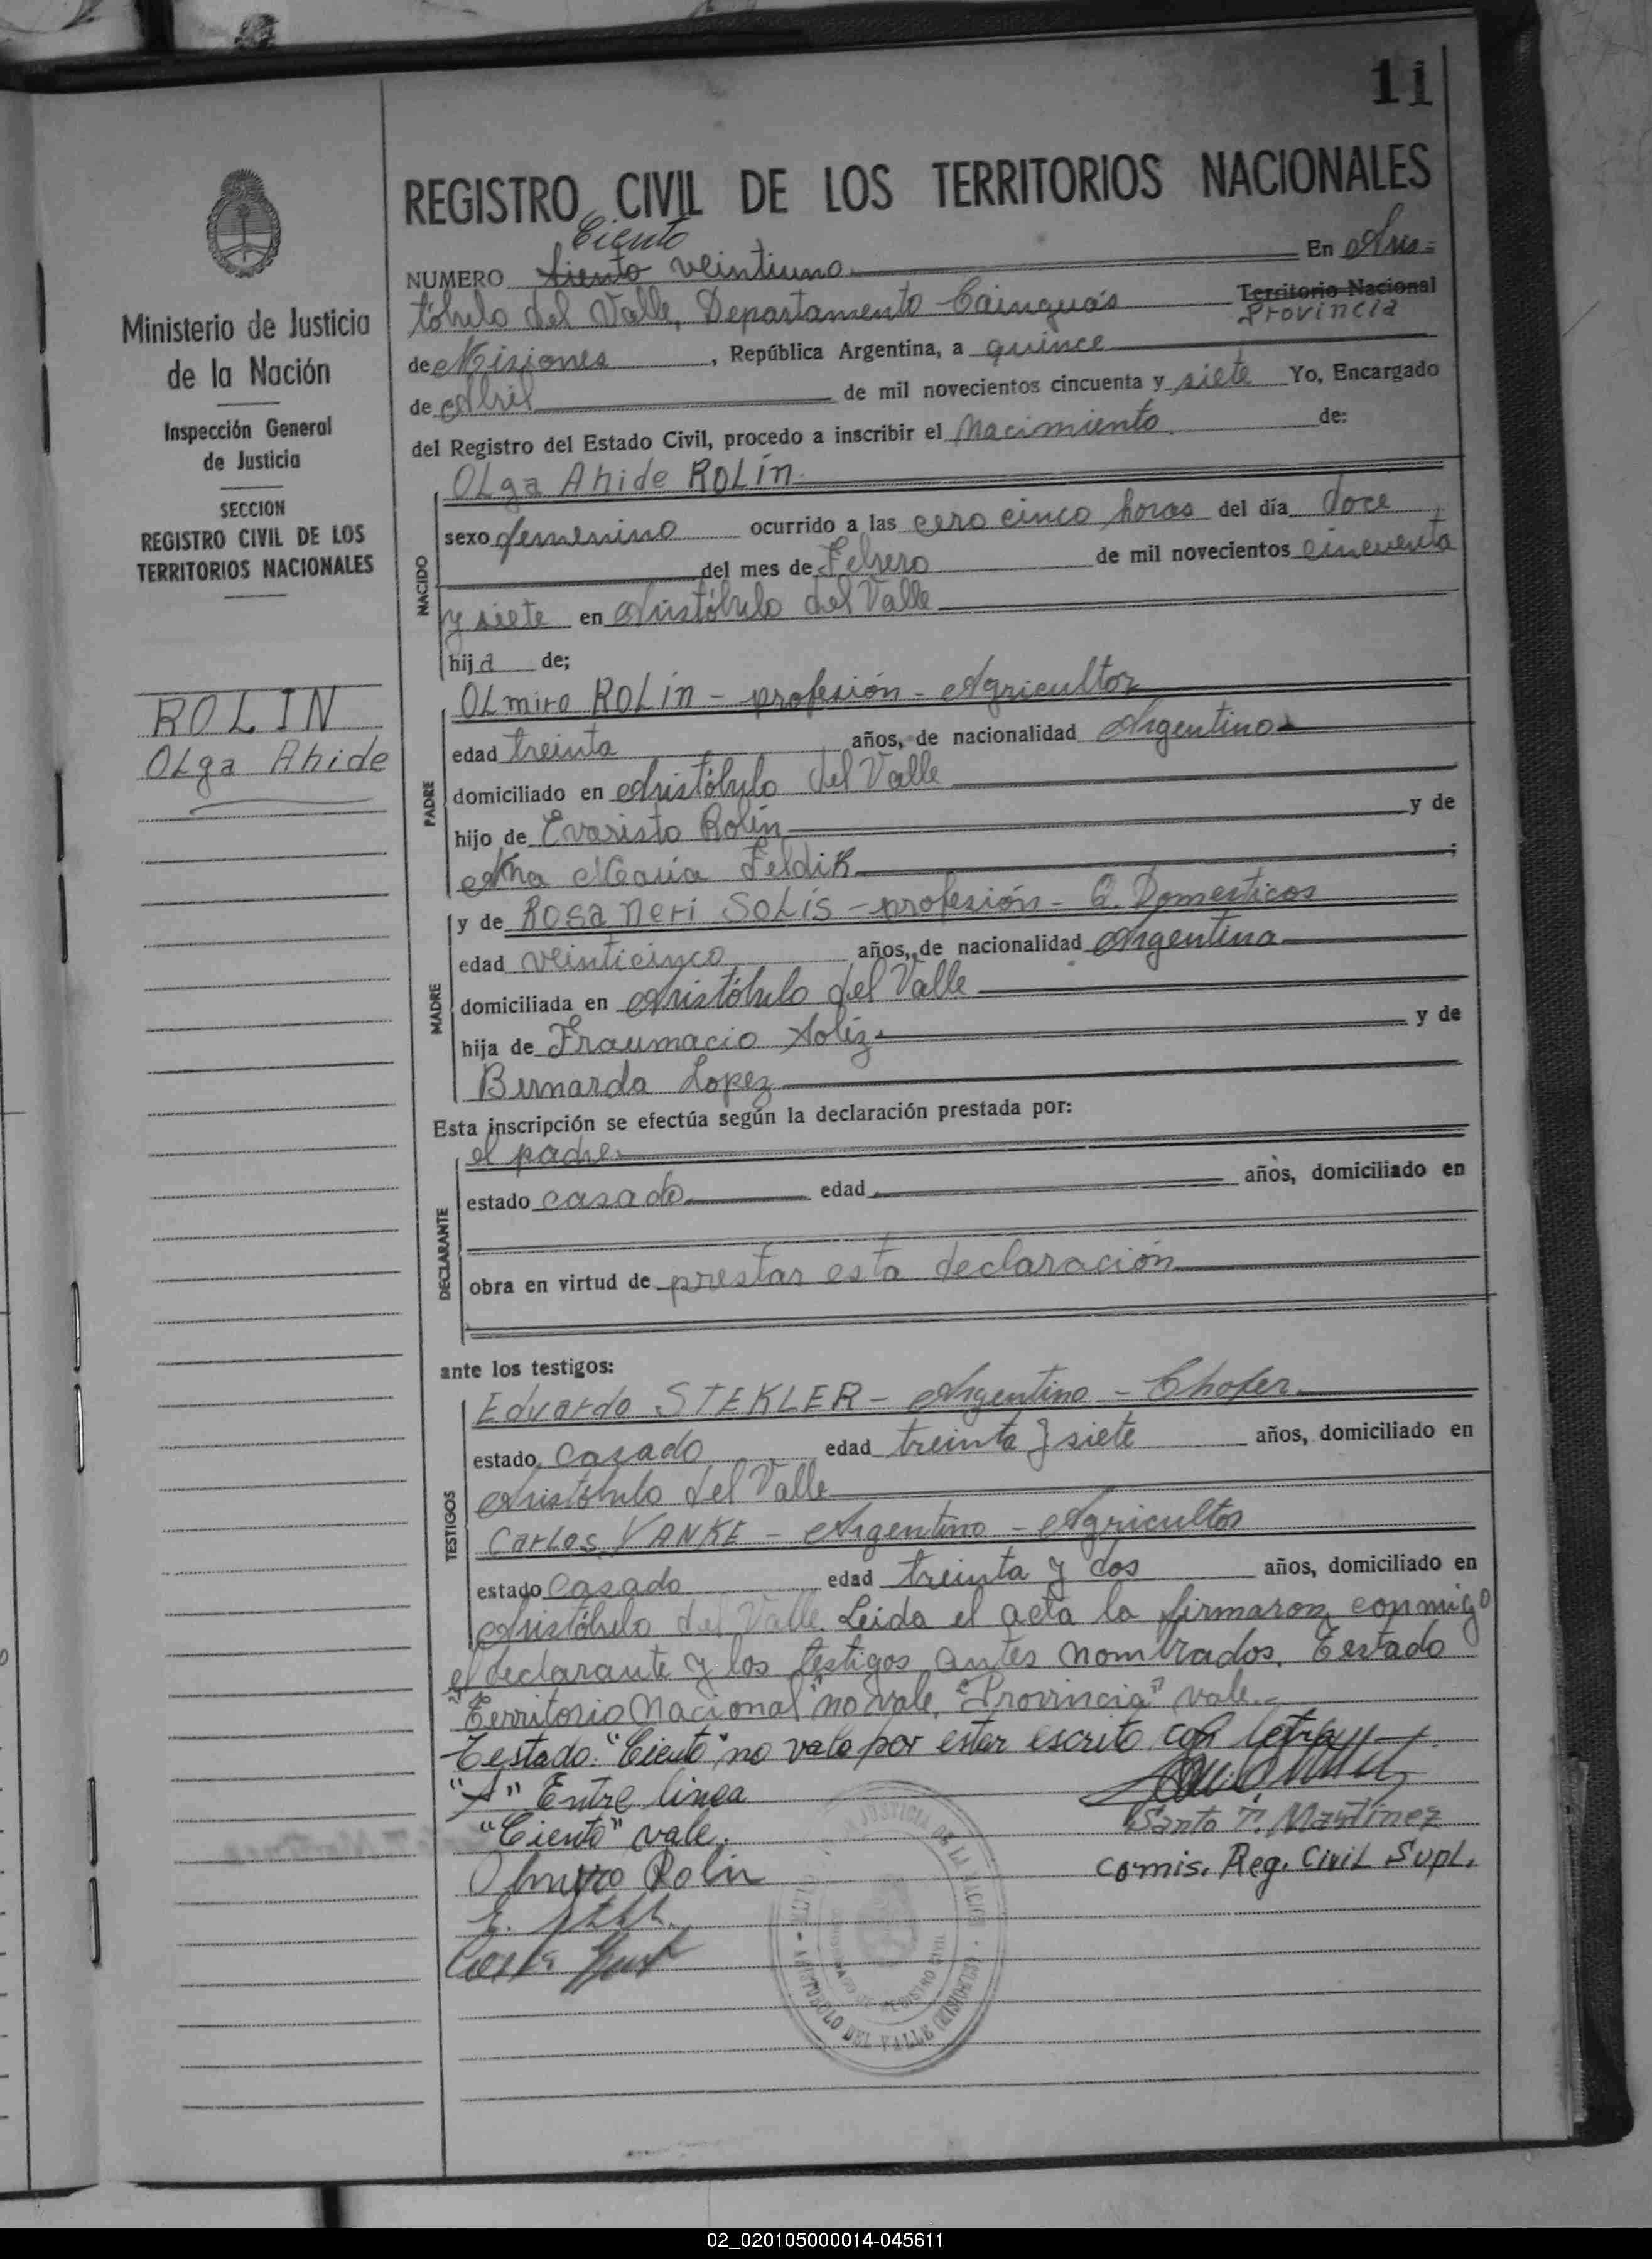 11
REGISTRO CIVIL DE LOS TERRITORIOS NACIONALES
Ciento
NUMERO Siento veintiuno En Aris-
tóbulo del Valle, Departamento Cainguás Territorio Nacional
Provincia
de Misiones, República Argentina, a quince
de Abril de mil novecientos cincuenta y siete Yo, Encargado
del Registro del Estado Civil, procedo a inscribir el Nacimiento de:
Ministerio de Justicia
de la Nación
Inspección General
de Justicia
SECCION
REGISTRO CIVIL DE LOS
TERRITORIOS NACIONALES
ROLIN
OLga Ahide
NACIDO
OLga Ahide ROLín
sexo femenino ocurrido a las cero cinco horas del día doce
del mes de Febrero de mil novecientos cincuenta
y siete en Aristóbulo del Valle
hija de;
PADRE
OLmiro ROLín - profesión - Agricultor
edad treinta años, de nacionalidad Argentino
domiciliado en Aristóbulo del Valle
hijo de Evaristo Rolin y de
Ana Maria Feldik ;
MADRE
y de Rosa Neri SoLís - profesión - Q. Domesticos
edad veinticinco años, de nacionalidad Argentina
domiciliada en Aristóbulo del Valle
hija de Fraumacio Soliz y de
Bernarda Lopez
Esta inscripción se efectúa según la declaración prestada por:
DECLARANTE
el padre
estado casado edad años, domiciliado en
obra en virtud de prestar esta declaración
ante los testigos:
TESTIGOS
Eduardo STEKLER - Argentino - Chofer
estado casado edad treinta y siete años, domiciliado en
Aristóbulo del Valle
CarLos YANKE - Argentino - Agricultor
estado casado edad treinta y dos años, domiciliado en
Aristóbulo del Valle. Leida el acta la firmaron conmigo
el declarante y los testigos antes nombrados. Testado
"Territorio Nacional" no vale, "Provincia" vale.-
Testado. "Ciento" no vale por estar escrito con letra
"S" Entre linea
"Ciento" vale.
Santo T. Martínez
Comis. Reg. Civil Supl.
Olmiro Rolin
JUSTICIA DE LA NACION
ARISTOBULO DEL VALLE (MISIONES)
REGISTRO CIVIL
02_020105000014-045611